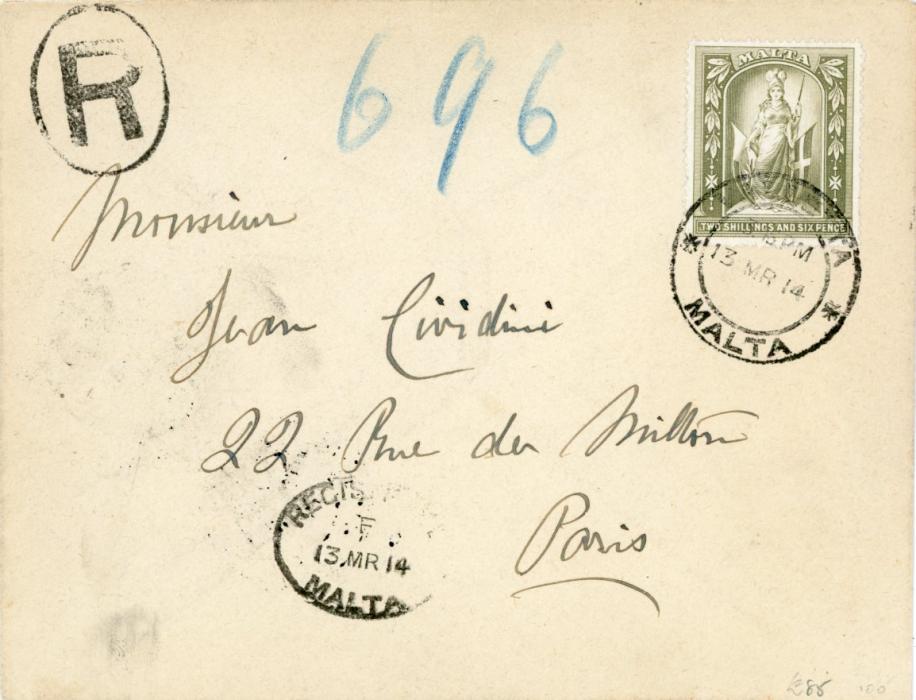 R
696
MALTA
TWO SHILLINGS AND SIX PENCE
PM
13 MR 14
MALTA
Monsieur
Jean Cividini
22 Rue de Milton
Paris
REGIS
F
13.MR 14
MALTA